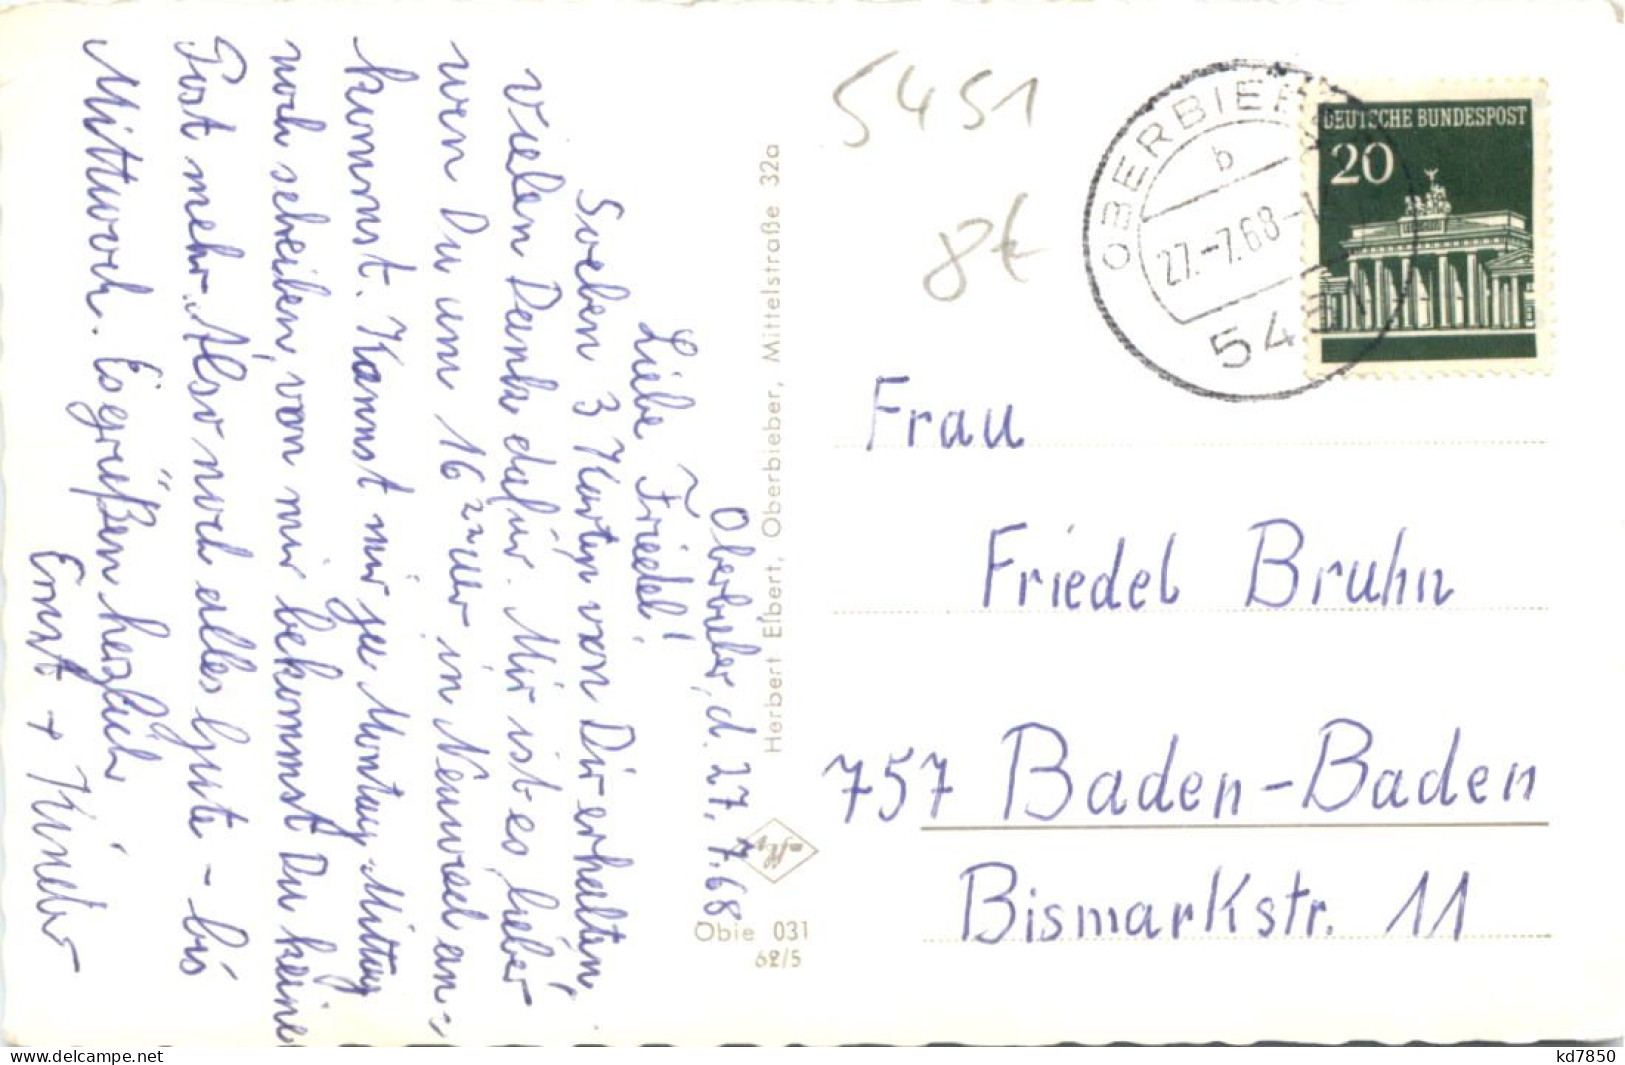 Oberbieber, d. 27.7.68
Liebe Friedel!
Soeben 3 Karten von Dir erhalten,
vielen Dank dafür. Mir ist es lieber
wen Du um 16²² Uhr in Neuwied an=
kommst. Kannst mir ja Montag-Mittag
noch schreiben, von mir bekommst Du keine
Post mehr. Also noch alles Gute - bis
Mittwoch. Es grüßen herzlich
Ernst + Kinder
Herbert Elbert, Oberbieber, Mittelstraße 32a
Obie 031
62/5
5451
8€
OBERBIE
b
27.-7.68-1
545
DEUTSCHE BUNDESPOST
20
Frau
Friedel Bruhn
757 Baden-Baden
Bismarkstr. 11
www.delcampe.net
kd7850